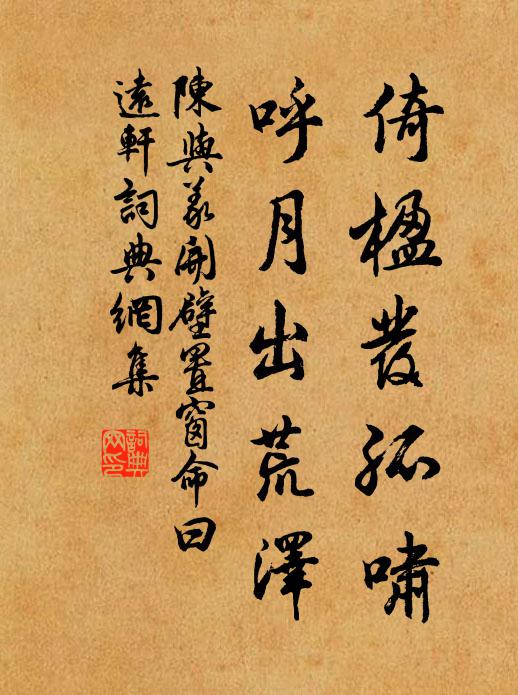 倚楹發孤嘯
呼月出荒澤
陳與義開壁置窗命曰
遠軒詞典網集
詞典网印